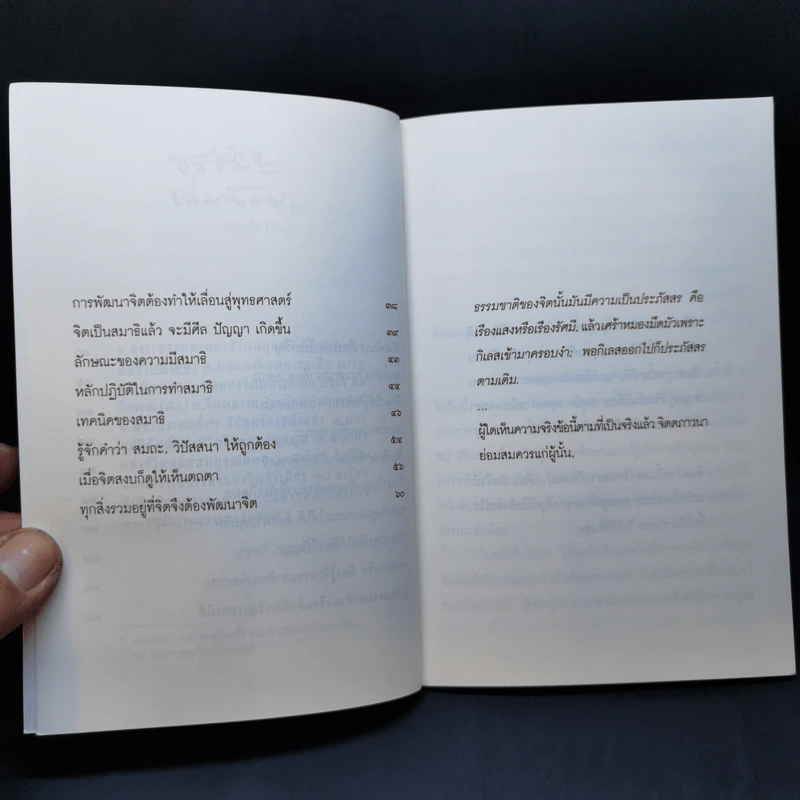 การพัฒนาจิตต้องทำให้เลื่อนสู่พุทธศาสตร์ ๓๘
จิตเป็นสมาธิแล้ว จะมีศีล ปัญญา เกิดขึ้น ๓๙
ลักษณะของความมีสมาธิ ๔๓
หลักปฏิบัติในการทำสมาธิ ๔๔
เทคนิคของสมาธิ ๔๖
รู้จักคำว่า สมถะ, วิปัสสนา ให้ถูกต้อง ๕๔
เมื่อจิตสงบก็ดูให้เห็นตถตา ๕๖
ทุกสิ่งรวมอยู่ที่จิตจึงต้องพัฒนาจิต ๖๐
ธรรมชาติของจิตนั้นมันมีความเป็นประภัสสร คือ
เรืองแสงหรือเรืองรัศมี, แล้วเศร้าหมองมืดมัวเพราะ
กิเลสเข้ามาครอบงำ; พอกิเลสออกไปก็ประภัสสร
ตามเดิม.
...
ผู้ใดเห็นความจริงข้อนี้ตามที่เป็นจริงแล้ว จิตตภาวนา
ย่อมสมควรแก่ผู้นั้น.